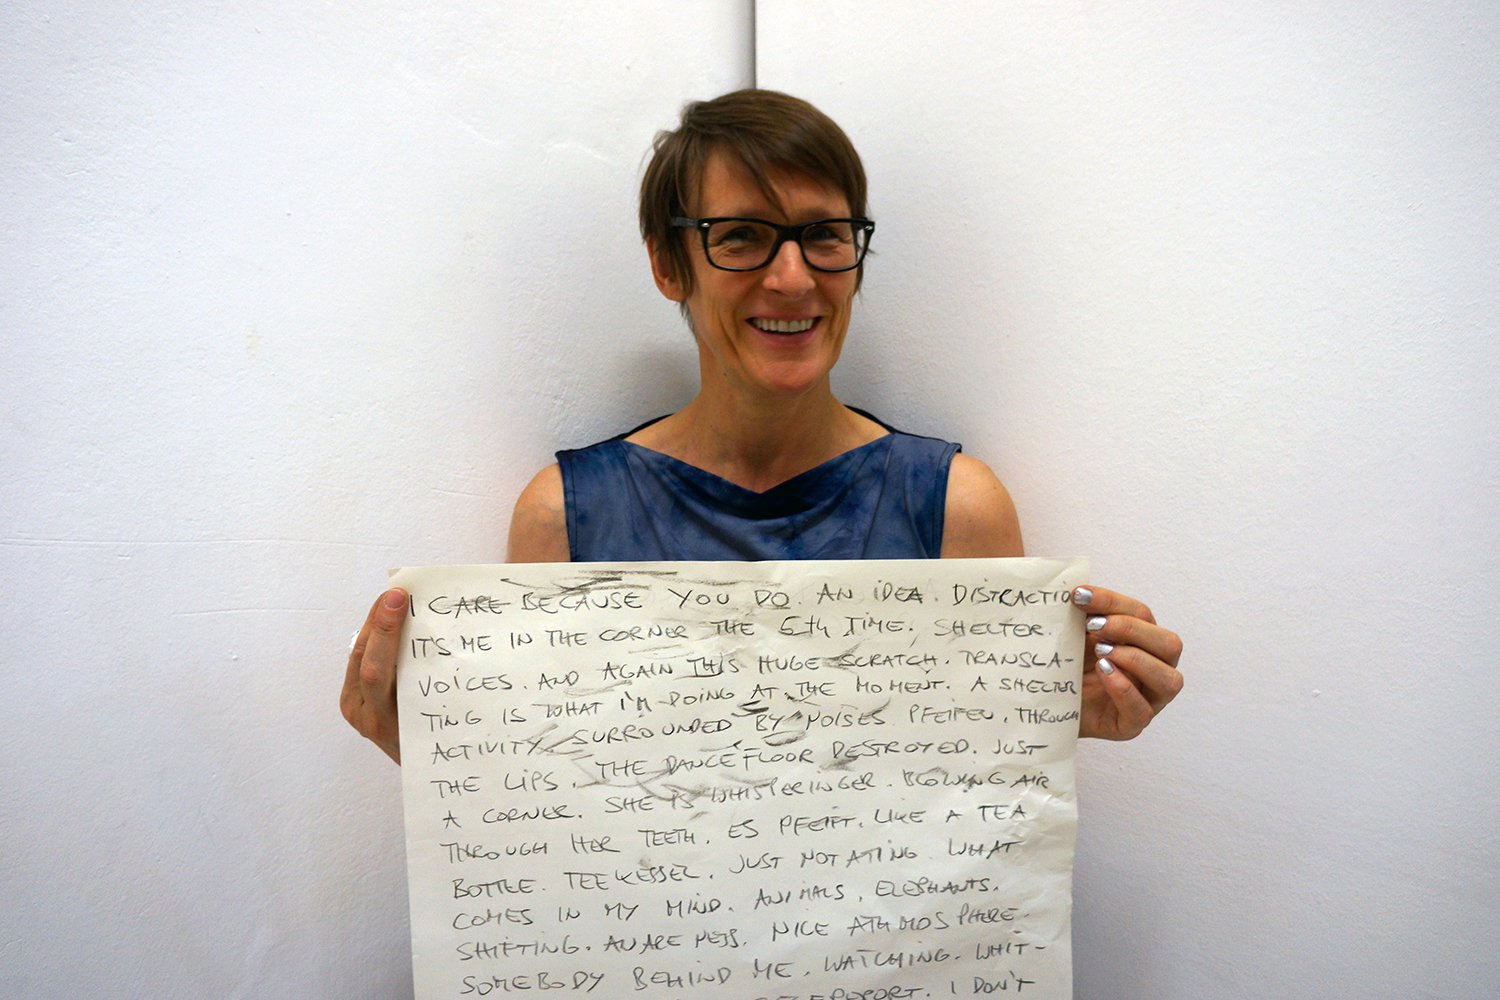 I CARE BECAUSE YOU DO. AN IDEA. DISTRACTION
IT'S ME IN THE CORNER THE 5th TIME. SHELTER.
VOICES. AND AGAIN THIS HUGE SCRATCH. TRANSLA-
TING IS WHAT I'M DOING AT THE MOMENT. A SHELTER
ACTIVITY. SURROUNDED BY NOISES. PFEIFEN. THROUGH
THE LIPS. THE DANCEFLOOR DESTROYED. JUST
A CORNER. SHE IS WHISPERINGER. BLOWING AIR
THROUGH HER TEETH. ES PFEIFT. LIKE A TEA
BOTTLE. TEEKESSEL. JUST NOTATING WHAT
COMES IN MY MIND. ANIMALS. ELEPHANTS.
SHIFTING. AWARENESS. NICE ATHMOSPHERE.
SOMEBODY BEHIND ME. WATCHING. WHIT-
I DON'T